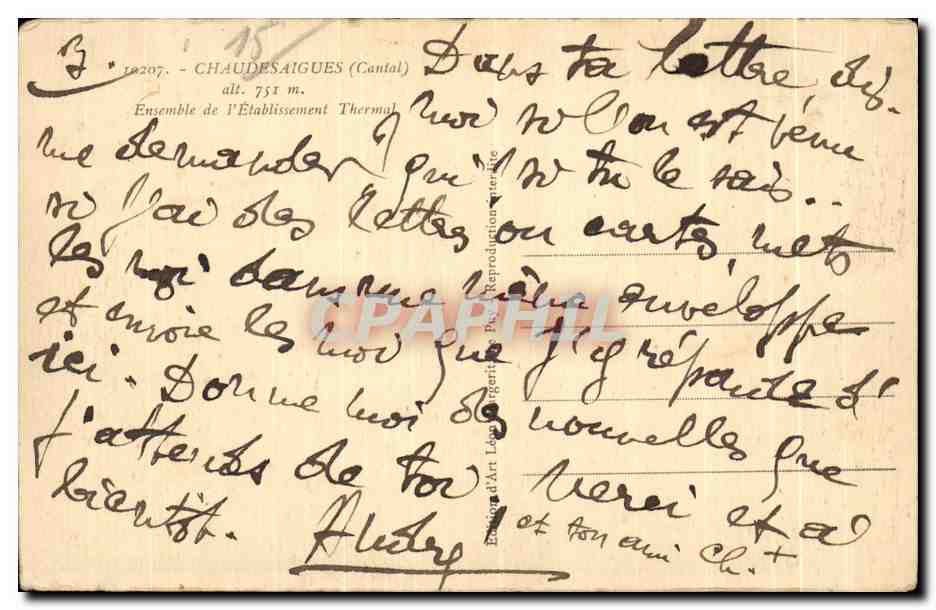 15
10207. - CHAUDESAIGUES (Cantal)
alt. 751 m.
Ensemble de l'Établissement Thermal
Dans ta lettre, dis-
moi si l'on est venu
me demander, qui si tu le sais..
si j'ai des lettres ou cartes, mets
les moi dans une même enveloppe
et envoie les moi que j'y réponde d'
ici. Donne moi des nouvelles que
j'attends de toi Merci et à
bientôt. Andrey
et ton ami Ch.
Editions d'Art Léon Margerit Le Puy Reproduction interdite
CPAPHIL